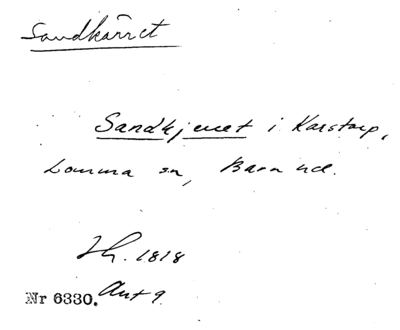 Sandkärret
Sandkjerret i Karstorp,
Lomma sn, Bara hd.
Jh. 1818
Nr 6330. Ant 9.